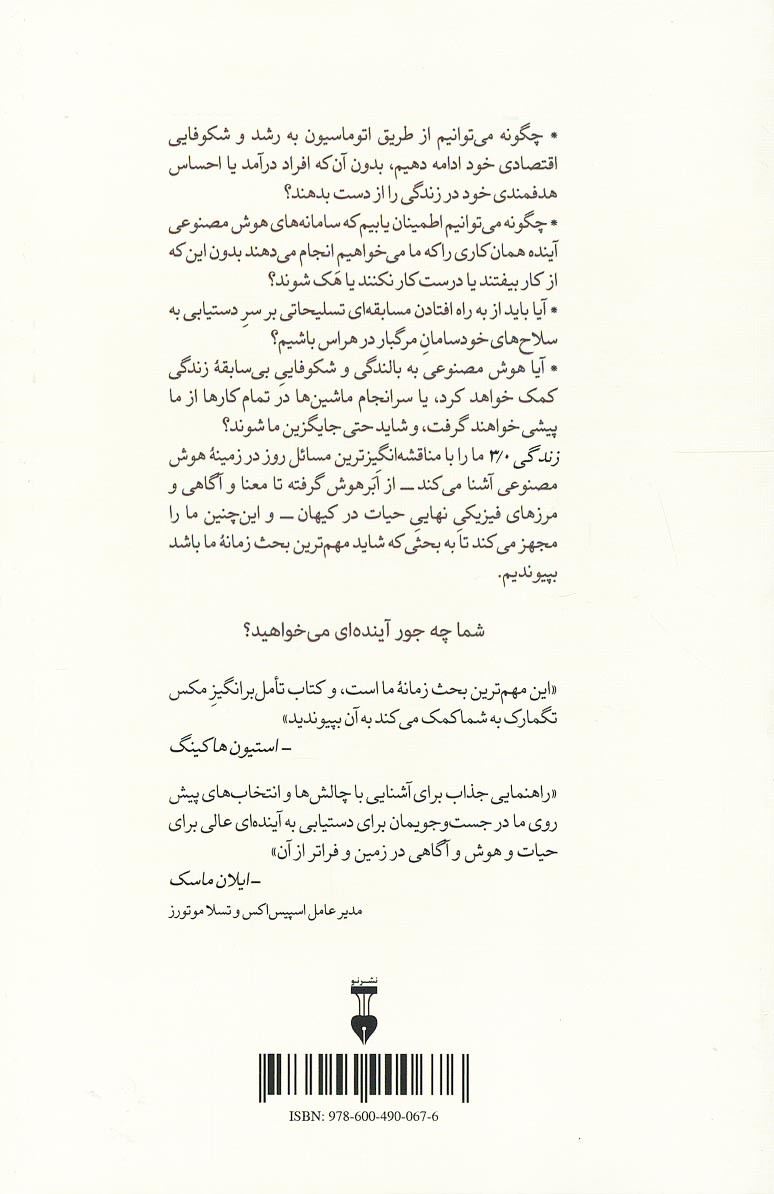 * چگونه می‌توانیم از طریق اتوماسیون به رشد و شکوفایی
اقتصادی خود ادامه دهیم، بدون آن‌که افراد درآمد یا احساس
هدفمندی خود در زندگی را از دست بدهند؟
* چگونه می‌توانیم اطمینان یابیم که سامانه‌های هوش مصنوعی
آینده همان کاری را که ما می‌خواهیم انجام می‌دهند بدون این که
از کار بیفتند یا درست کار نکنند یا هَک شوند؟
* آیا باید از به راه افتادن مسابقه‌ای تسلیحاتی بر سرِ دستیابی به
سلاح‌های خودسامانِ مرگبار در هراس باشیم؟
* آیا هوش مصنوعی به بالندگی و شکوفاییِ بی‌سابقهٔ زندگی
کمک خواهد کرد، یا سرانجام ماشین‌ها در تمام کارها از ما
پیشی خواهند گرفت، و شاید حتی جایگزین ما شوند؟
زندگی ۳/۰ ما را با مناقشه‌انگیزترین مسائل روز در زمینهٔ هوش
مصنوعی آشنا می‌کند ــ از اَبَرهوش گرفته تا معنا و آگاهی و
مرزهای فیزیکیِ نهاییِ حیات در کیهان ــ و این‌چنین ما را
مجهز می‌کند تا به بحثی که شاید مهم‌ترین بحث زمانهٔ ما باشد
بپیوندیم.
شما چه جور آینده‌ای می‌خواهید؟
«این مهم‌ترین بحث زمانهٔ ما است، و کتاب تأمل‌برانگیزِ مکس
تگمارک به شما کمک می‌کند به آن بپیوندید»
ـ استیون هاکینگ
«راهنمایی جذاب برای آشنایی با چالش‌ها و انتخاب‌های پیش
روی ما در جست‌وجویمان برای دستیابی به آینده‌ای عالی برای
حیات و هوش و آگاهی در زمین و فراتر از آن»
ـ ایلان ماسک
مدیر عامل اسپیس‌اکس و تسلا موتورز
نشرنو
ISBN: 978-600-490-067-6